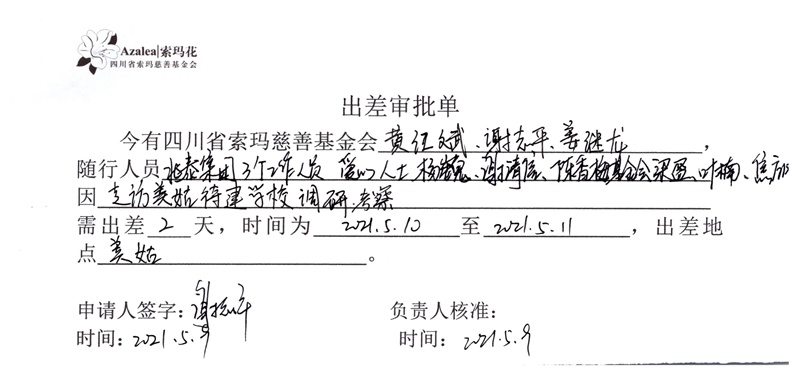 Azalea|索玛花
四川省索玛慈善基金会
出差审批单
今有四川省索玛慈善基金会 黄红斌、谢志平、姜继龙,
随行人员 兆泰集团3个工作人员 爱心人士 杨 、谢清 、陈香梅基金会 梁 、叶楠、焦
因 走访美姑待建学校调研、考察
需出差 2 天，时间为 2021.5.10 至 2021.5.11 ，出差地
点 美姑 。
申请人签字：谢志平 负责人核准：
时间：2021.5.9 时间：2021.5.9